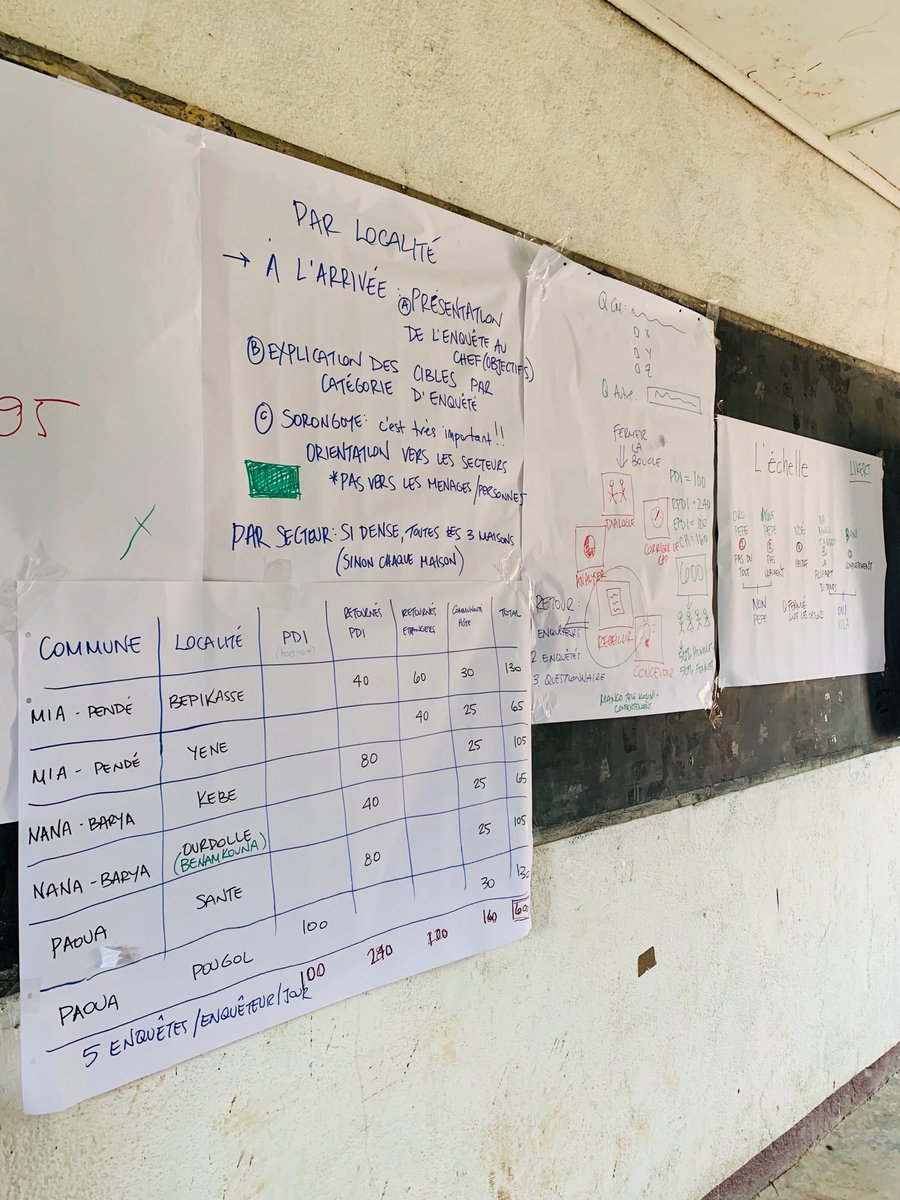 95
X
PAR LOCALITÉ
→ À L'ARRIVÉE : Ⓐ PRÉSENTATION
DE L'ENQUÊTE AU
CHEF (OBJECTIFS)
Ⓑ EXPLICATION DES CIBLES PAR
CATÉGORIE D'ENQUÉTÉ
Ⓒ SORONGOYE : c'est très important !!
ORIENTATION VERS LES SECTEURS
*PAS VERS LES MENAGES/PERSONNES
PAR SECTEUR : SI DENSE, TOUTES LES 3 MAISONS
(SINON CHAQUE MAISON)
COMMUNE LOCALITÉ PDI RETOURNÉS PDI RETOURNÉS ETRANGERS COMMUNAUTÉ HÔTE TOTAL
MIA - PENDÉ BEPIKASSE 40 60 30 130
MIA - PENDÉ YENE 40 25 65
NANA - BARYA KEBE 80 25 105
NANA - BARYA OURDOLLE (BENAMKOUNA) 40 25 65
PAOUA SANTE 80 25 105
PAOUA POUGOL 100 30 130
100 240 160
5 ENQUÊTES / ENQUÊTEUR / JOUR
Q CM :
□ X
□ Y
□ Z
Q Autre :
FERMER
LA
BOUCLE
DIALOGUE
CORRIGER LE
ANALYSER
RECUEILLIR
CONCEVOIR
PDI = 100
RPDI = 240
CA = 160
600
50% HOMMES
50% FEMMES
RETOUR :
ENQUÊTEURS
2. ENQUÊTÉS
3 QUESTIONNAIRE
L'échelle
LIKERT
PEPE
PAS DU
TOUT
PEPE
PAS
VRAIMENT
LA
PLUPART
DU TEMPS
COMPLÈTEMENT
NON
PEPE
OUI